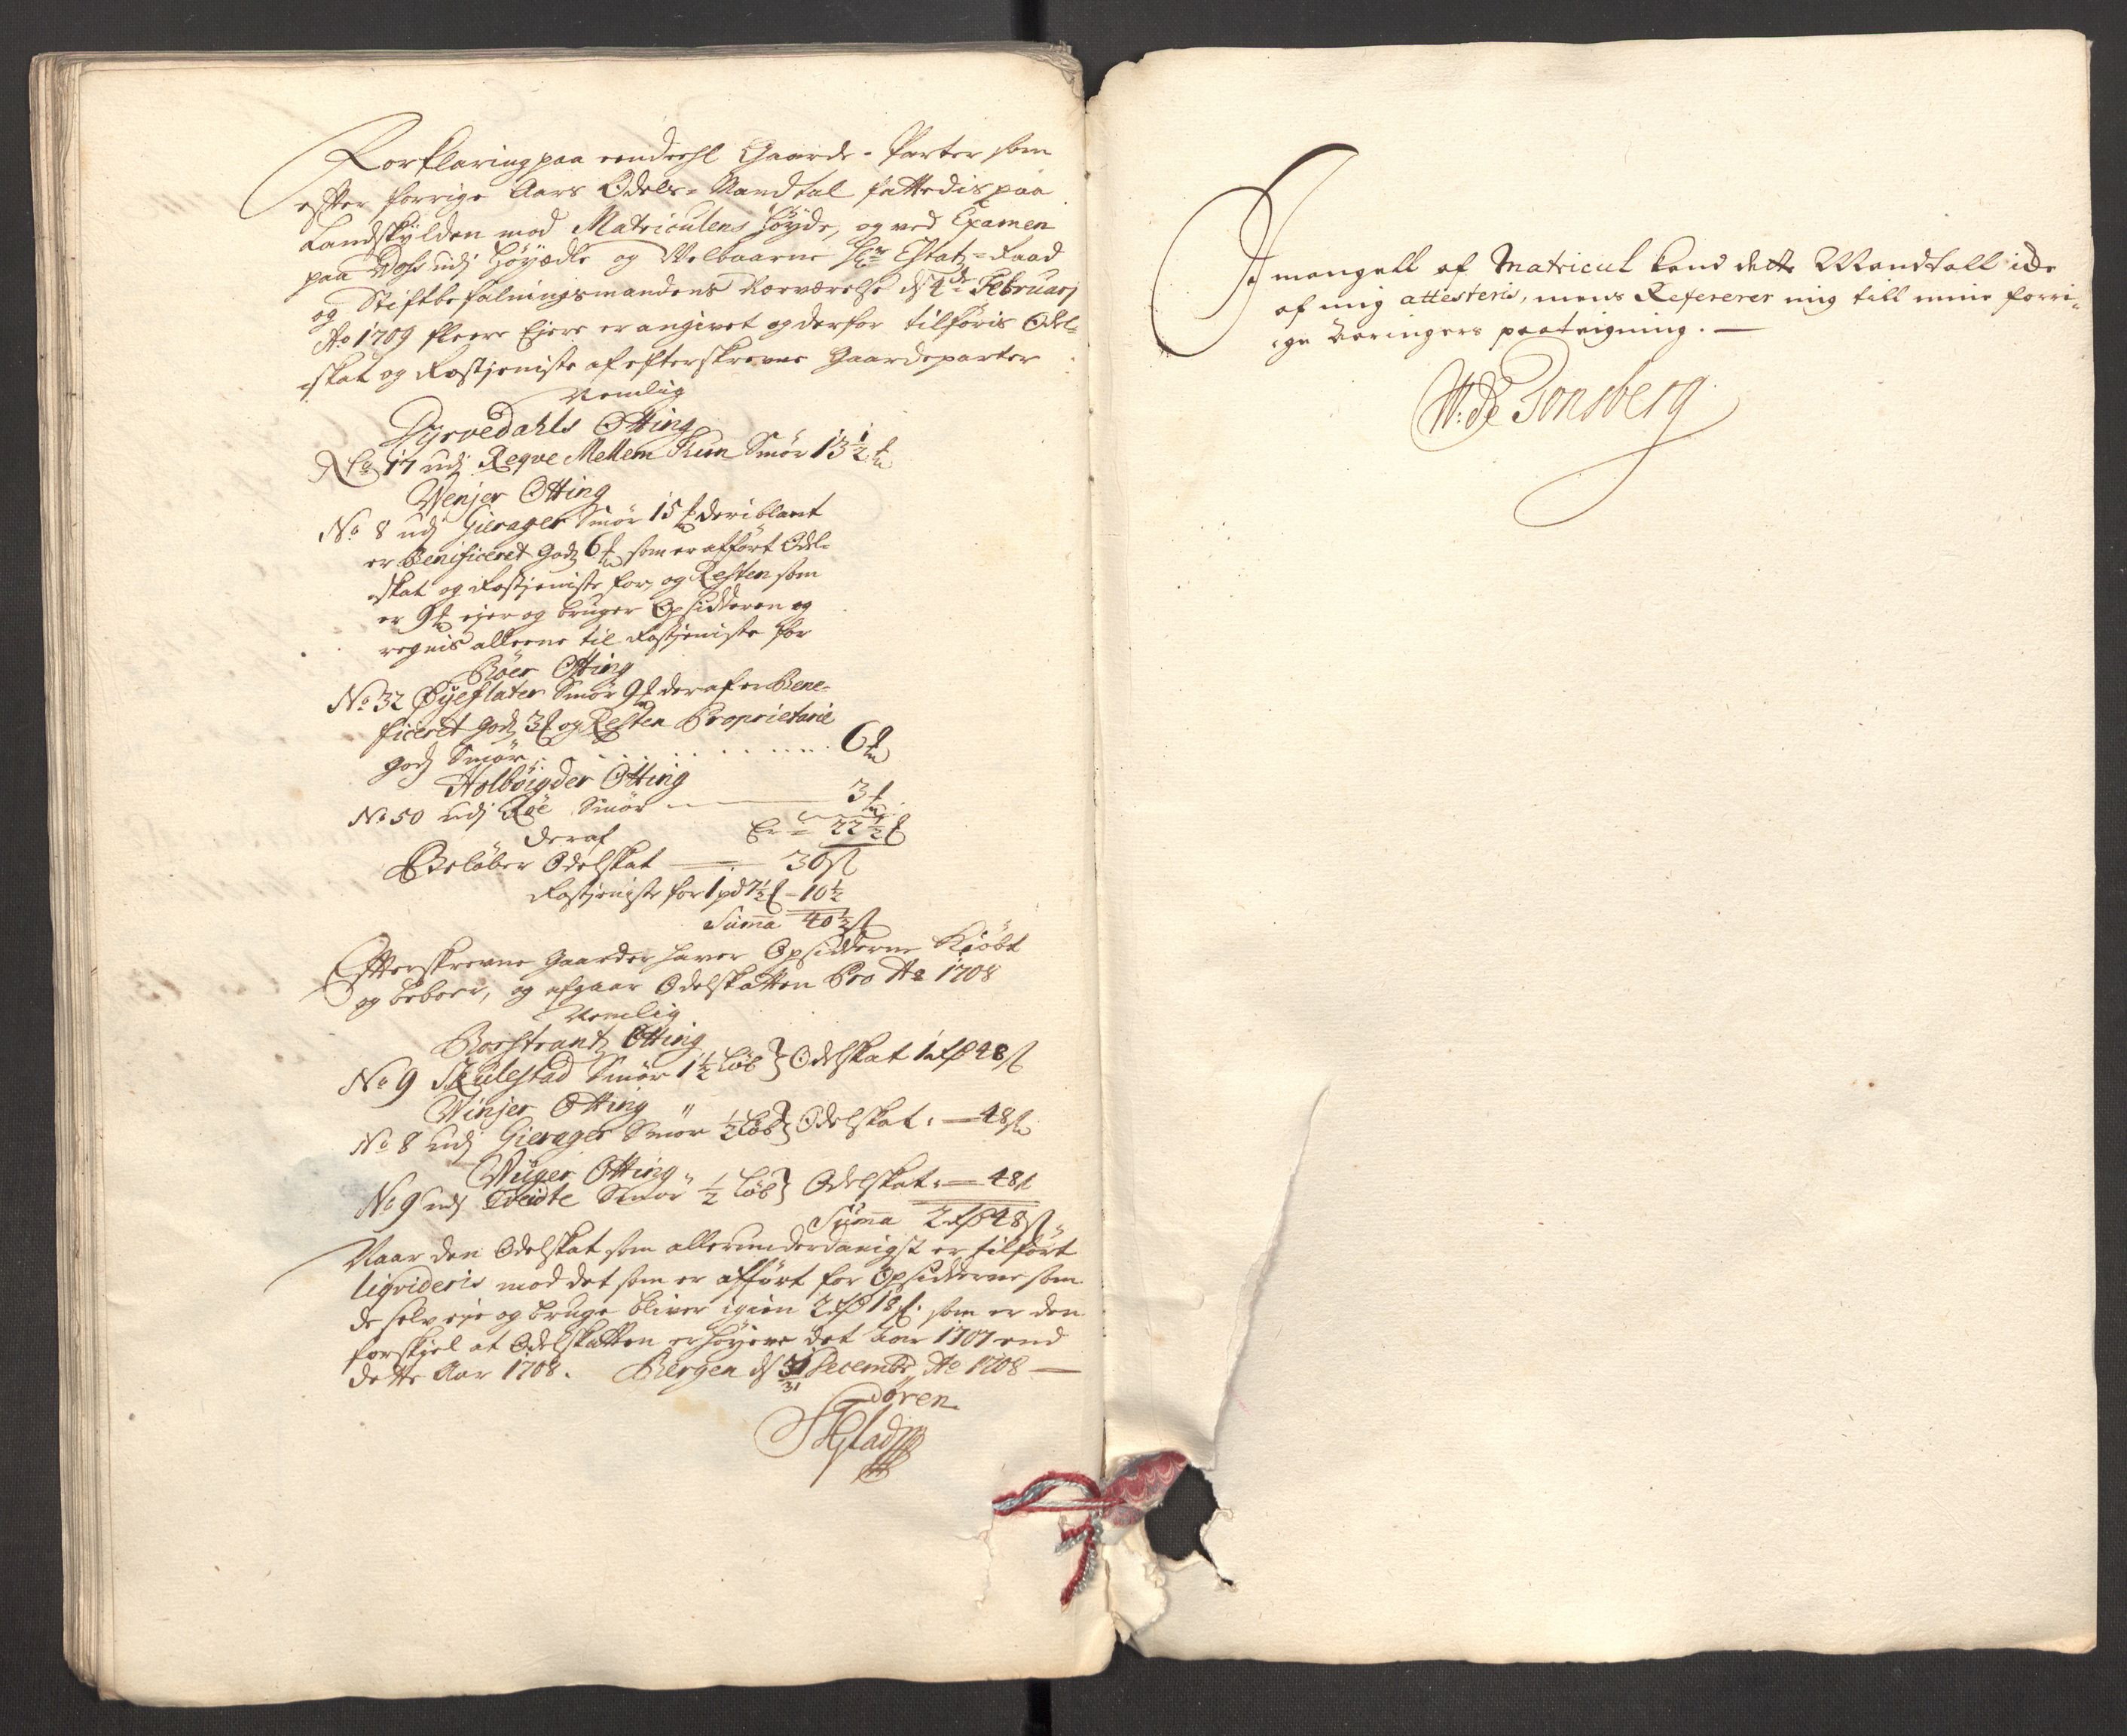 Forklaring paa eendeehl Gaarde-Parter som
efter forrige Aars Odels-Mandtal fattedis paa
Landskylden mod Matriculens Høyde, og ved Examen
paa Woss udj Høyædle og Welbaarne Hr Etatz-Raad
og Stiftbefalningsmandens Nærværelse d 4de Februarj
Ao 1709 fleere Ejere er angivet og derfor tilføris Odel-
skat og Rostjeniste af efterskrevne Gaardeparter
Nemlig
Dyrvedahls Otting
No 17 udj Reqve Mellem Run Smør 13½ f
Wenjer Otting
No 8 udj Gierager Smør 15 f deriblant
er Benificeret Godz 6 f som er afført Odel-
skat og Rostjeniste for, og Resten som
er 9 f ejer og bruger Opsidderen og
regnis alleene til Rostjeniste for
Bøer Otting
No 32 Øyeflaten Smør 9 f deraf er Bene-
ficeret Godz 3 f og Resten Proprietarie
godz Smør . . . . . . . . . . 6 f
Holbøigder Otting
No 50 udj Røe Smør — 3 f
Er = 22½ f
deraf
Beløber Odelskat — 30 s
Rostjeniste for 1 pd 7½ f - 10½
Summa 40½ s
Efterskrevne Gaarder haver Opsidderne Kiøbt
og beboer, og afgaar Odelskatten Pro Ao 1708
Nemlig
Borstrantz Otting
No 9 Skulestad Smør 1½ Løb } Odelskat 1 rd 48 s
Winjer Otting
No 8 udj Gierager Smør ½ Løb } Odelskat: — 48 s
Wiiger Otting
No 9 udj Tveidte Smør ½ Løb } Odelskat: — 48 s
Summa 2 rd 48 s
Naar den Odelskat som allerunderdanigst er tilført
liqvideris mod det som er afført for Opsidderne som
de selv eje og bruge bliver igien 2 rd 18 s. som er den
forskiel at Odelskatten er høyere det Aar 1707 end
dette Aar 1708. Bergen d 31 Decembr Ao 1708 —
Søren

I mangell af Matricul kand dette Mandtall icke
af mig attesteris, mens Refererer mig till min forri-
ge Aaringers paateigning. —
W: de Tonsberg